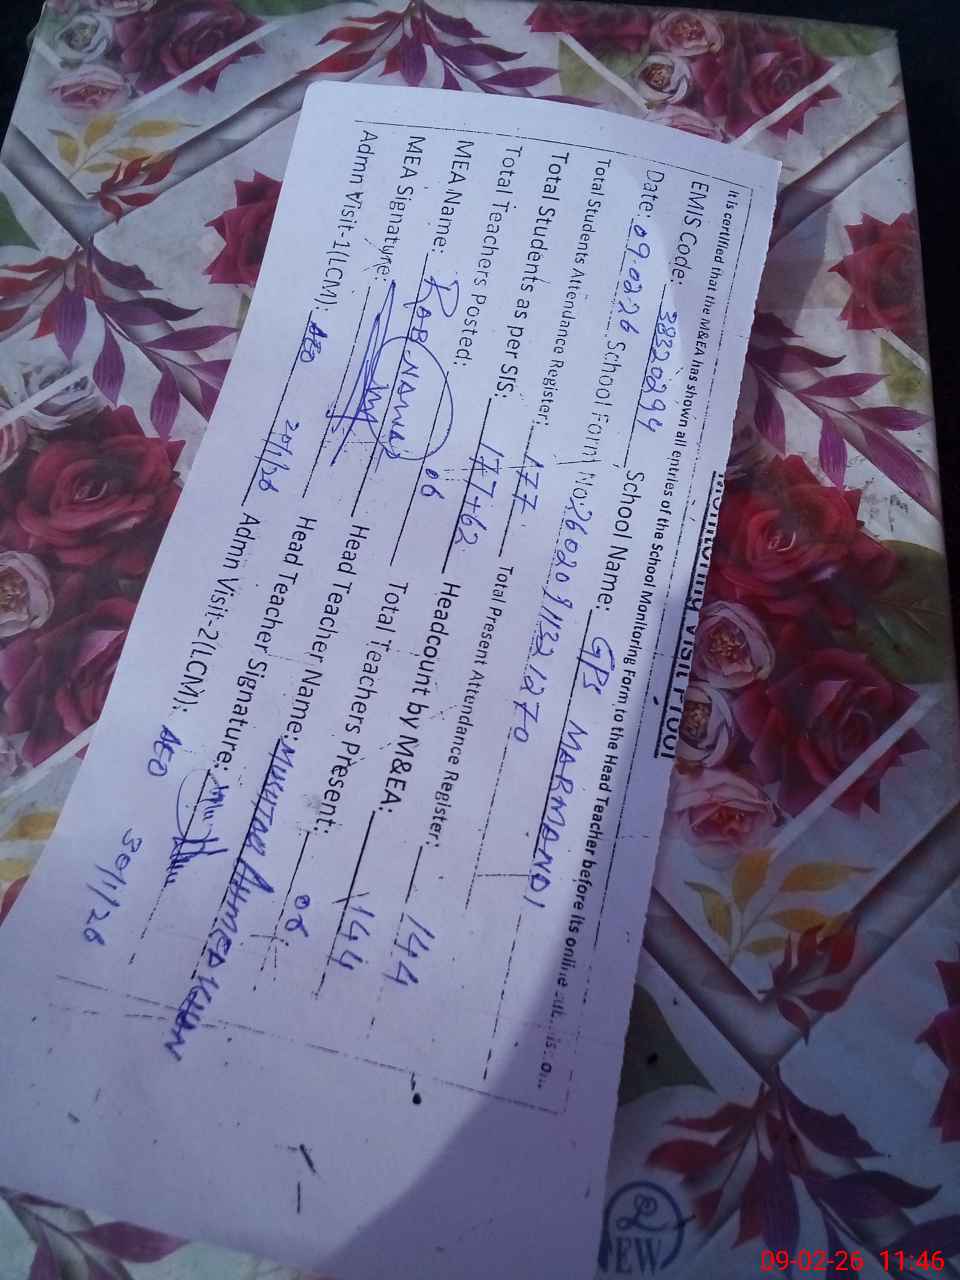 Monitoring Visit Proof
It is certified that the M&EA has shown all entries of the School Monitoring Form to the Head Teacher before its online
EMIS Code: 38320294 School Name: GPS MARMANDI
Date: 09.02.26 School Form No: 26020911321270
Total Students Attendance Register: 177 Total Present Attendance Register: 144
Total Students as per SIS: 177+62 Headcount by M&EA: 144
Total Teachers Posted: 06 Total Teachers Present: 06
MEA Name: RAB NAWAZ Head Teacher Name: MUSHTAQ AHMED KHAN
MEA Signature: Head Teacher Signature:
Admn Visit-1(LCM): AEO Admn Visit-2(LCM): AEO 30/1/26
EW
09-02-26 11:46